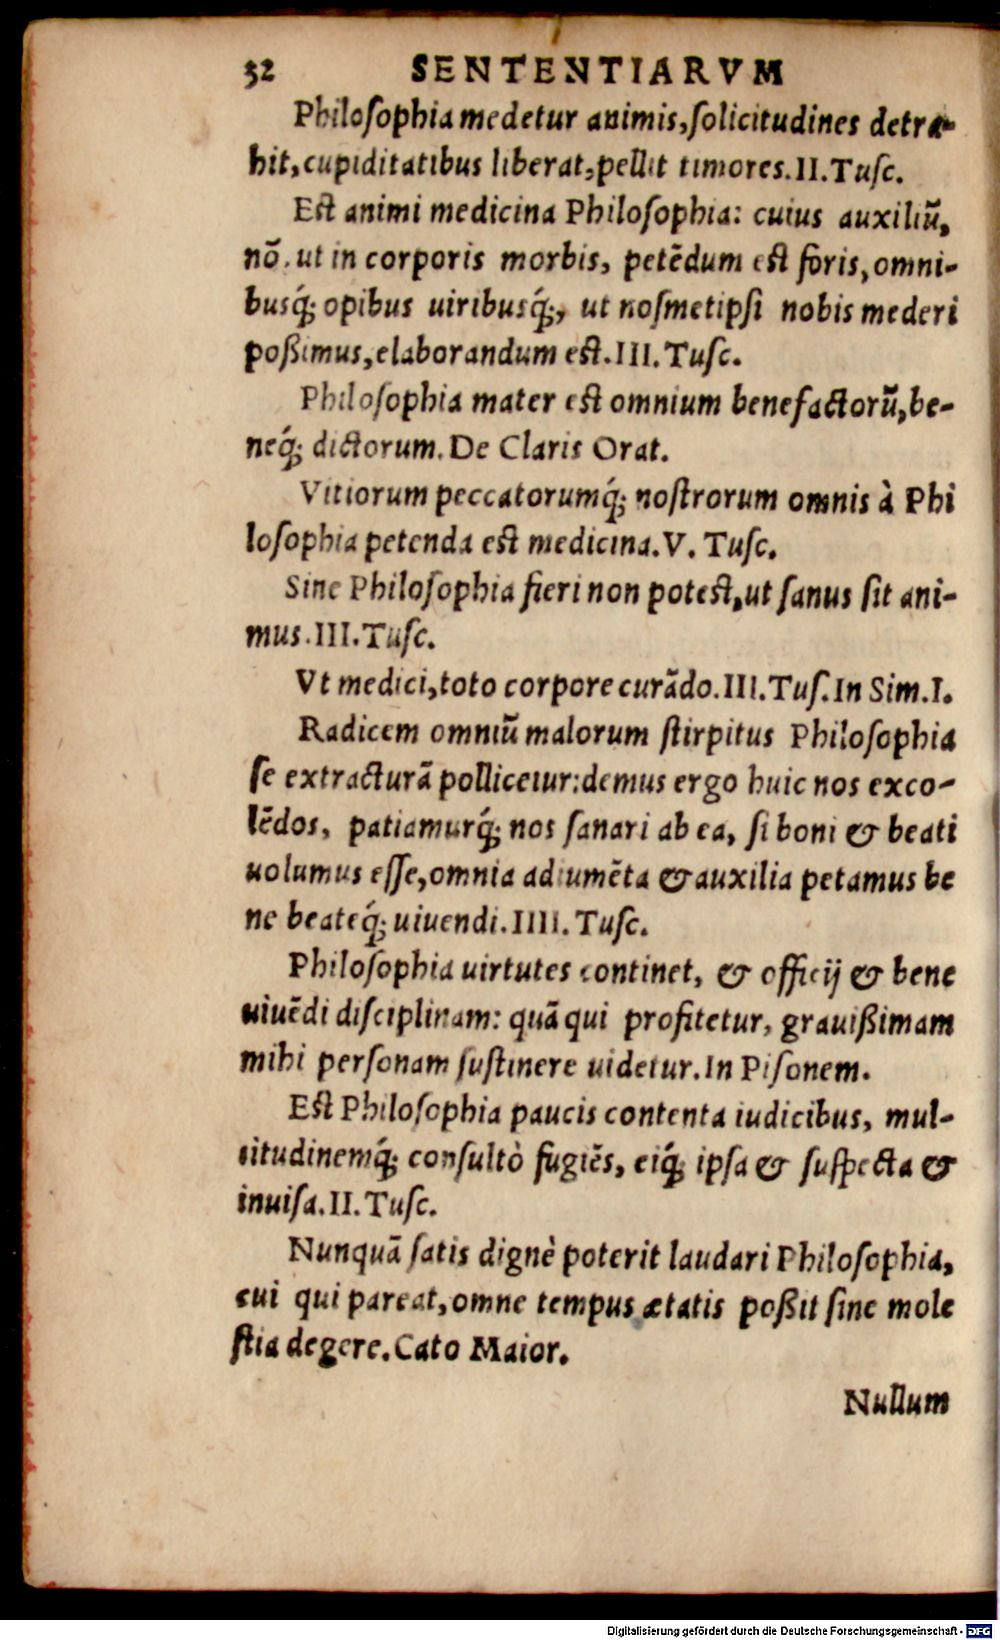 32 SENTENTIARVM
Philoſophia medetur animis, ſolicitudines detra-
hit, cupiditatibus liberat, pellit timores. II. Tuſc.
Est animi medicina Philoſophia: cuius auxiliū,
nō, ut in corporis morbis, petēdum est foris, omni-
busq́; opibus uiribusq́;, ut noſmetipſi nobis mederi
poßimus, elaborandum est. III. Tuſc.
Philoſophia mater est omnium benefactorū, be-
neq́; dictorum. De Claris Orat.
Vitiorum peccatorumq́; noſtrorum omnis à Phi
loſophia petenda est medicina. V. Tuſc.
Sine Philoſophia fieri non potest, ut ſanus ſit ani-
mus. III. Tuſc.
Vt medici, toto corpore curādo. III. Tuſ. In Sim. I.
Radicem omniū malorum ſtirpitus Philoſophia
ſe extracturā pollicetur: demus ergo huic nos exco-
lēdos, patiamurq́; nos ſanari ab ea, ſi boni & beati
uolumus eſſe, omnia adiumēta & auxilia petamus be
ne beateq́; uiuendi. IIII. Tuſc.
Philoſophia uirtutes continet, & officij & bene
uiuēdi diſciplinam: quā qui profitetur, grauißimam
mihi perſonam ſuſtinere uidetur. In Piſonem.
Est Philoſophia paucis contenta iudicibus, mul-
titudinemq́; conſultò fugiēs, eiq́; ipſa & ſuſpecta &
inuiſa. II. Tuſc.
Nunquā ſatis dignè poterit laudari Philoſophia,
cui qui pareat, omne tempus ætatis poßit ſine mole
ſtia degere. Cato Maior.
Nullum
Digitalisierung gefördert durch die Deutsche Forschungsgemeinschaft - DFG